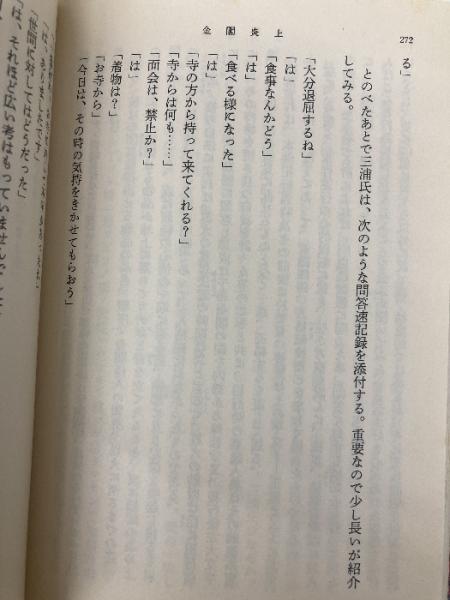 272
金閣炎上
る」
とのべたあとで三浦氏は、次のような問答速記録を添付する。重要なので少し長いが紹介
してみる。
「大分退屈するね」
「は」
「食事なんかどう」
「は」
「食べる様になった」
「は」
「寺の方から持って来てくれる？」
「寺からは何も……」
「面会は、禁止か？」
「は」
「着物は？」
「お寺から」
「今日は、その時の気持をきかせてもらおう」
「は、ありましたです」
「世間に対してはどうだった」
「は、それほど広い考はもっていませんでした